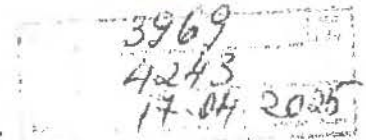 3969
4243
17.04.2025